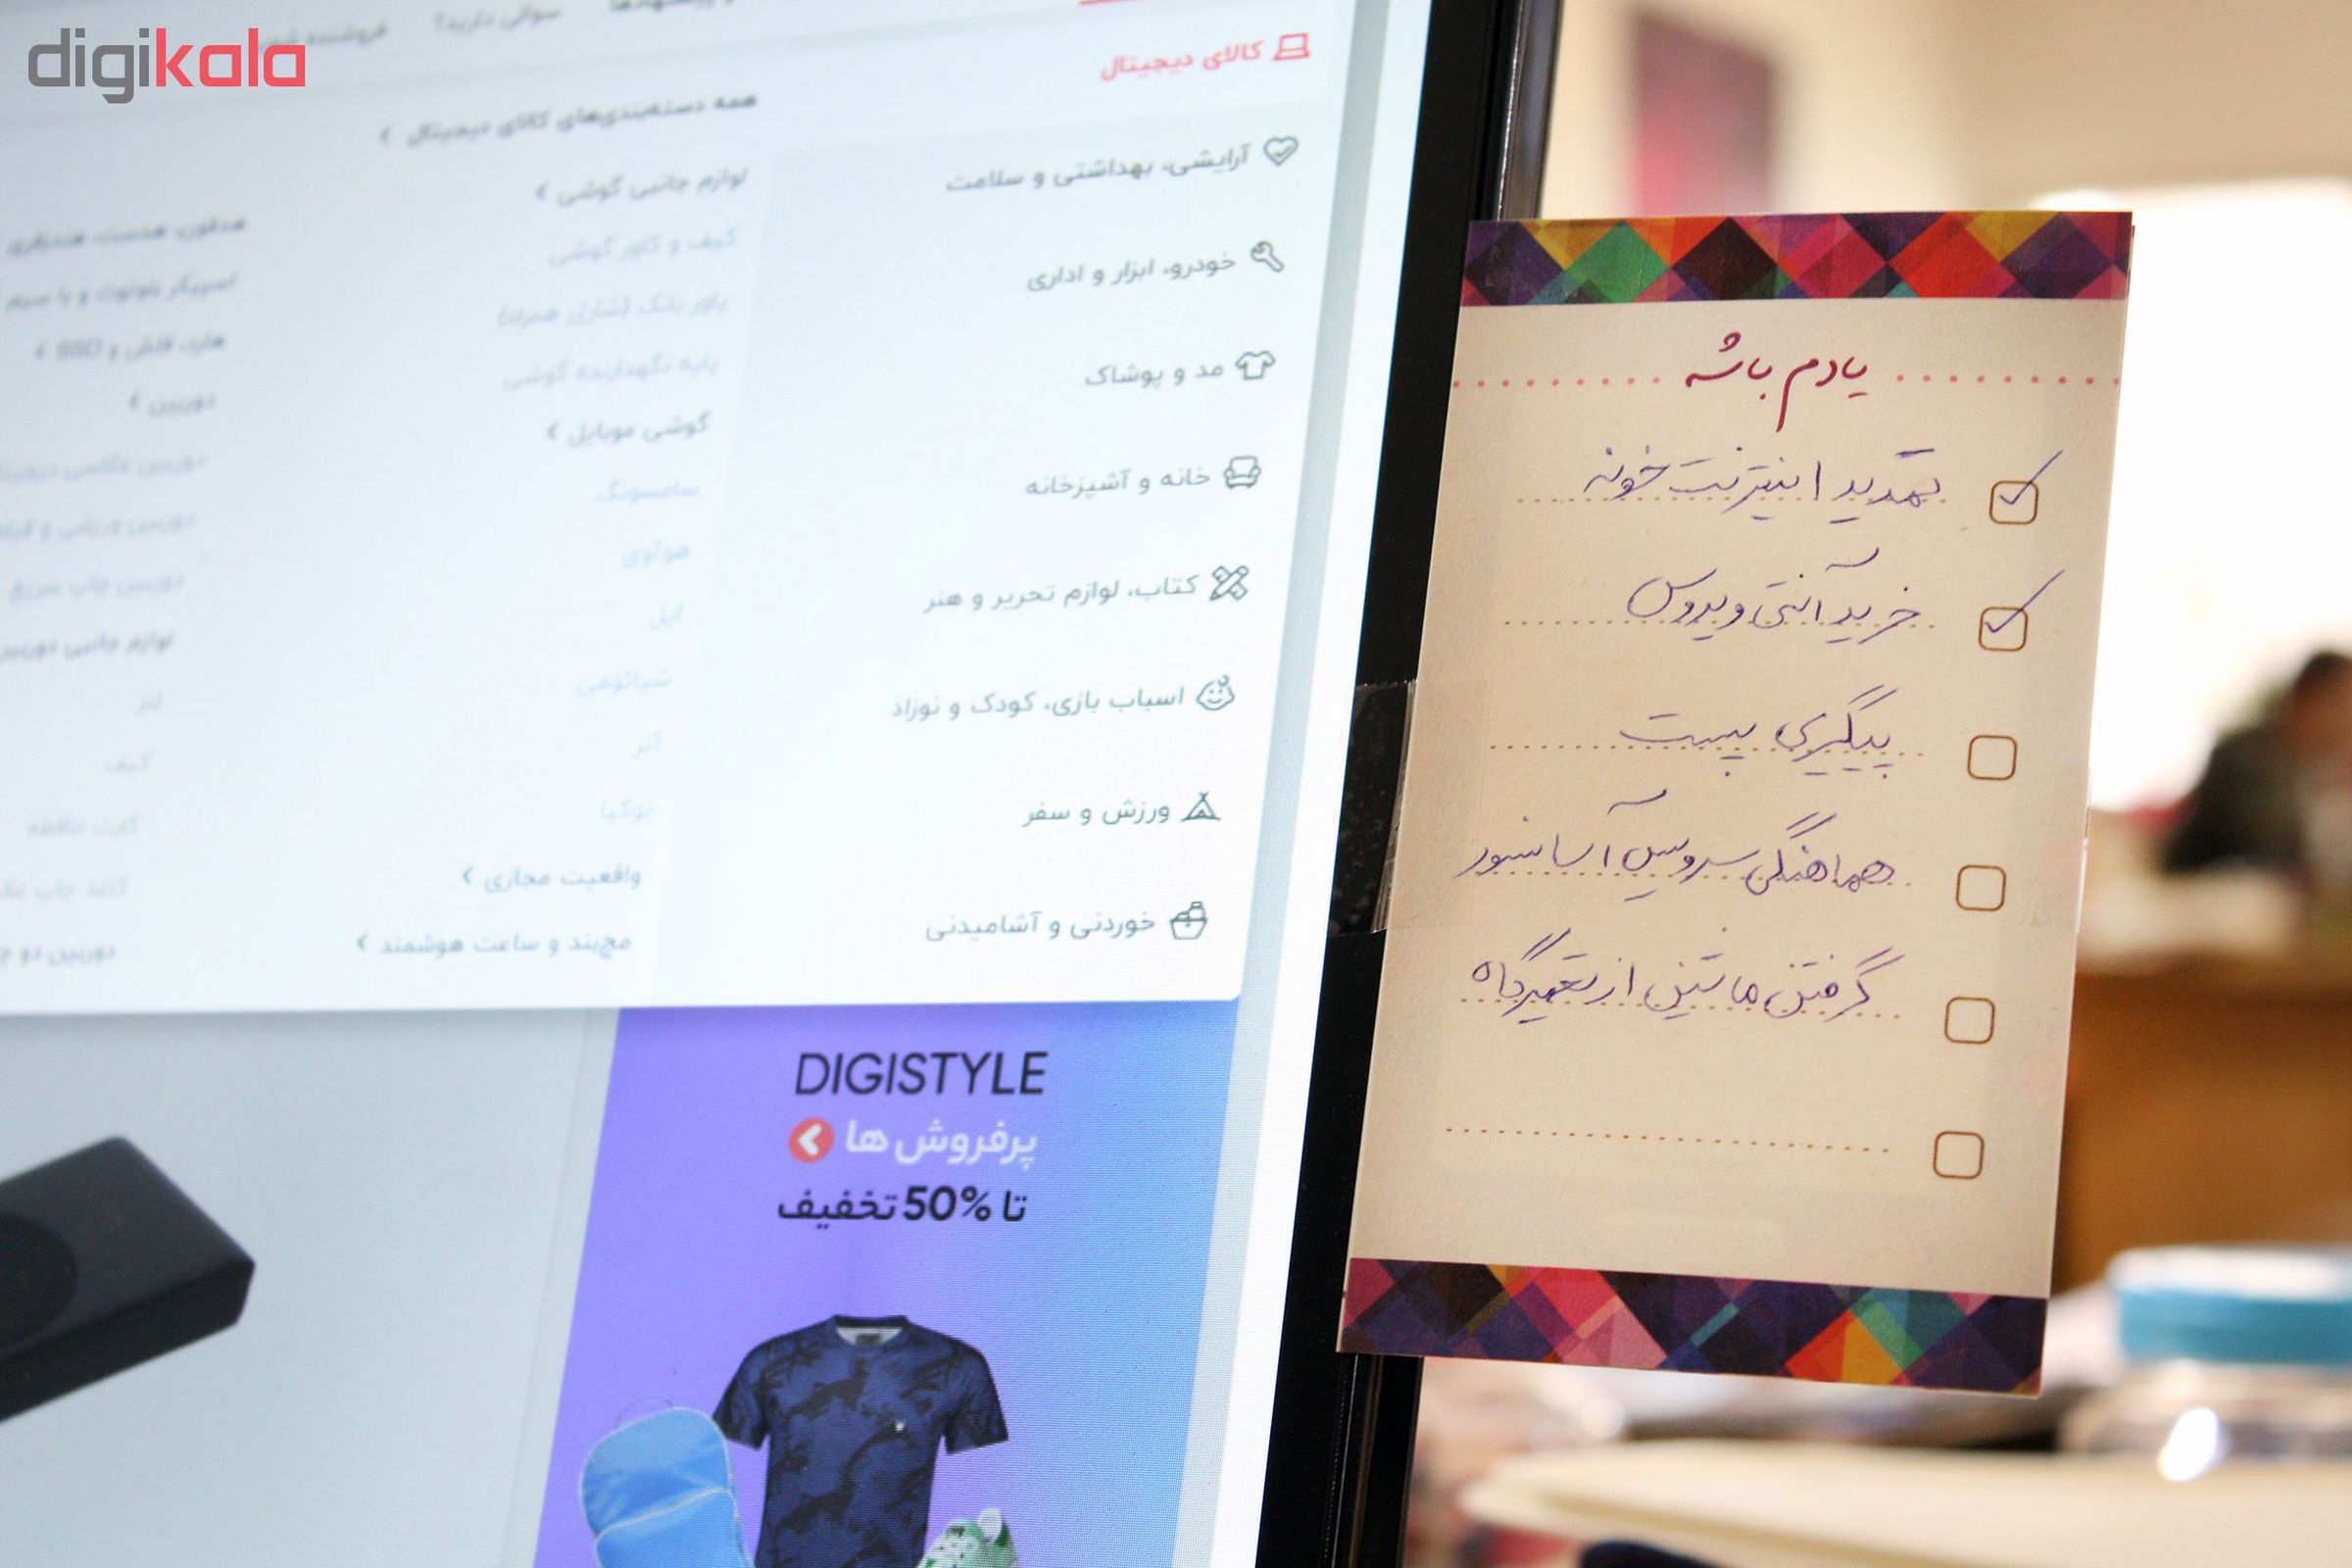 digikala
فروشنده
سوالی دارید؟
کالای دیجیتال
آرایشی، بهداشتی و سلامت
خودرو، ابزار و اداری
مد و پوشاک
خانه و آشپزخانه
کتاب، لوازم تحریر و هنر
اسباب بازی، کودک و نوزاد
ورزش و سفر
خوردنی و آشامیدنی
همه دسته‌بندی‌های کالای دیجیتال
لوازم جانبی گوشی
کیف و کاور گوشی
پاور بانک (شارژر همراه)
پایه نگهدارنده گوشی
گوشی موبایل
سامسونگ
هوآوی
اپل
شیائومی
آنر
نوکیا
واقعیت مجازی
مچ‌بند و ساعت هوشمند
هدفون، هدست، هندزفری
اسپیکر بلوتوث و با سیم
هارد، فلش و SSD
دوربین
دوربین عکاسی دیجیتا
دوربین ورزشی و
دوربین چاپ سریع
لوازم جانبی دوربین
لنز
کیف
کارت حافظه
کاغذ چاپ
دوربین دو
DIGISTYLE
پرفروش ها
تا 50% تخفیف
یادم باشه
تمدید اینترنت خونه
خرید آنتی ویروس
پیگیری پست
هماهنگی سرویس آسانسور
گرفتن ماشین از تعمیرگاه